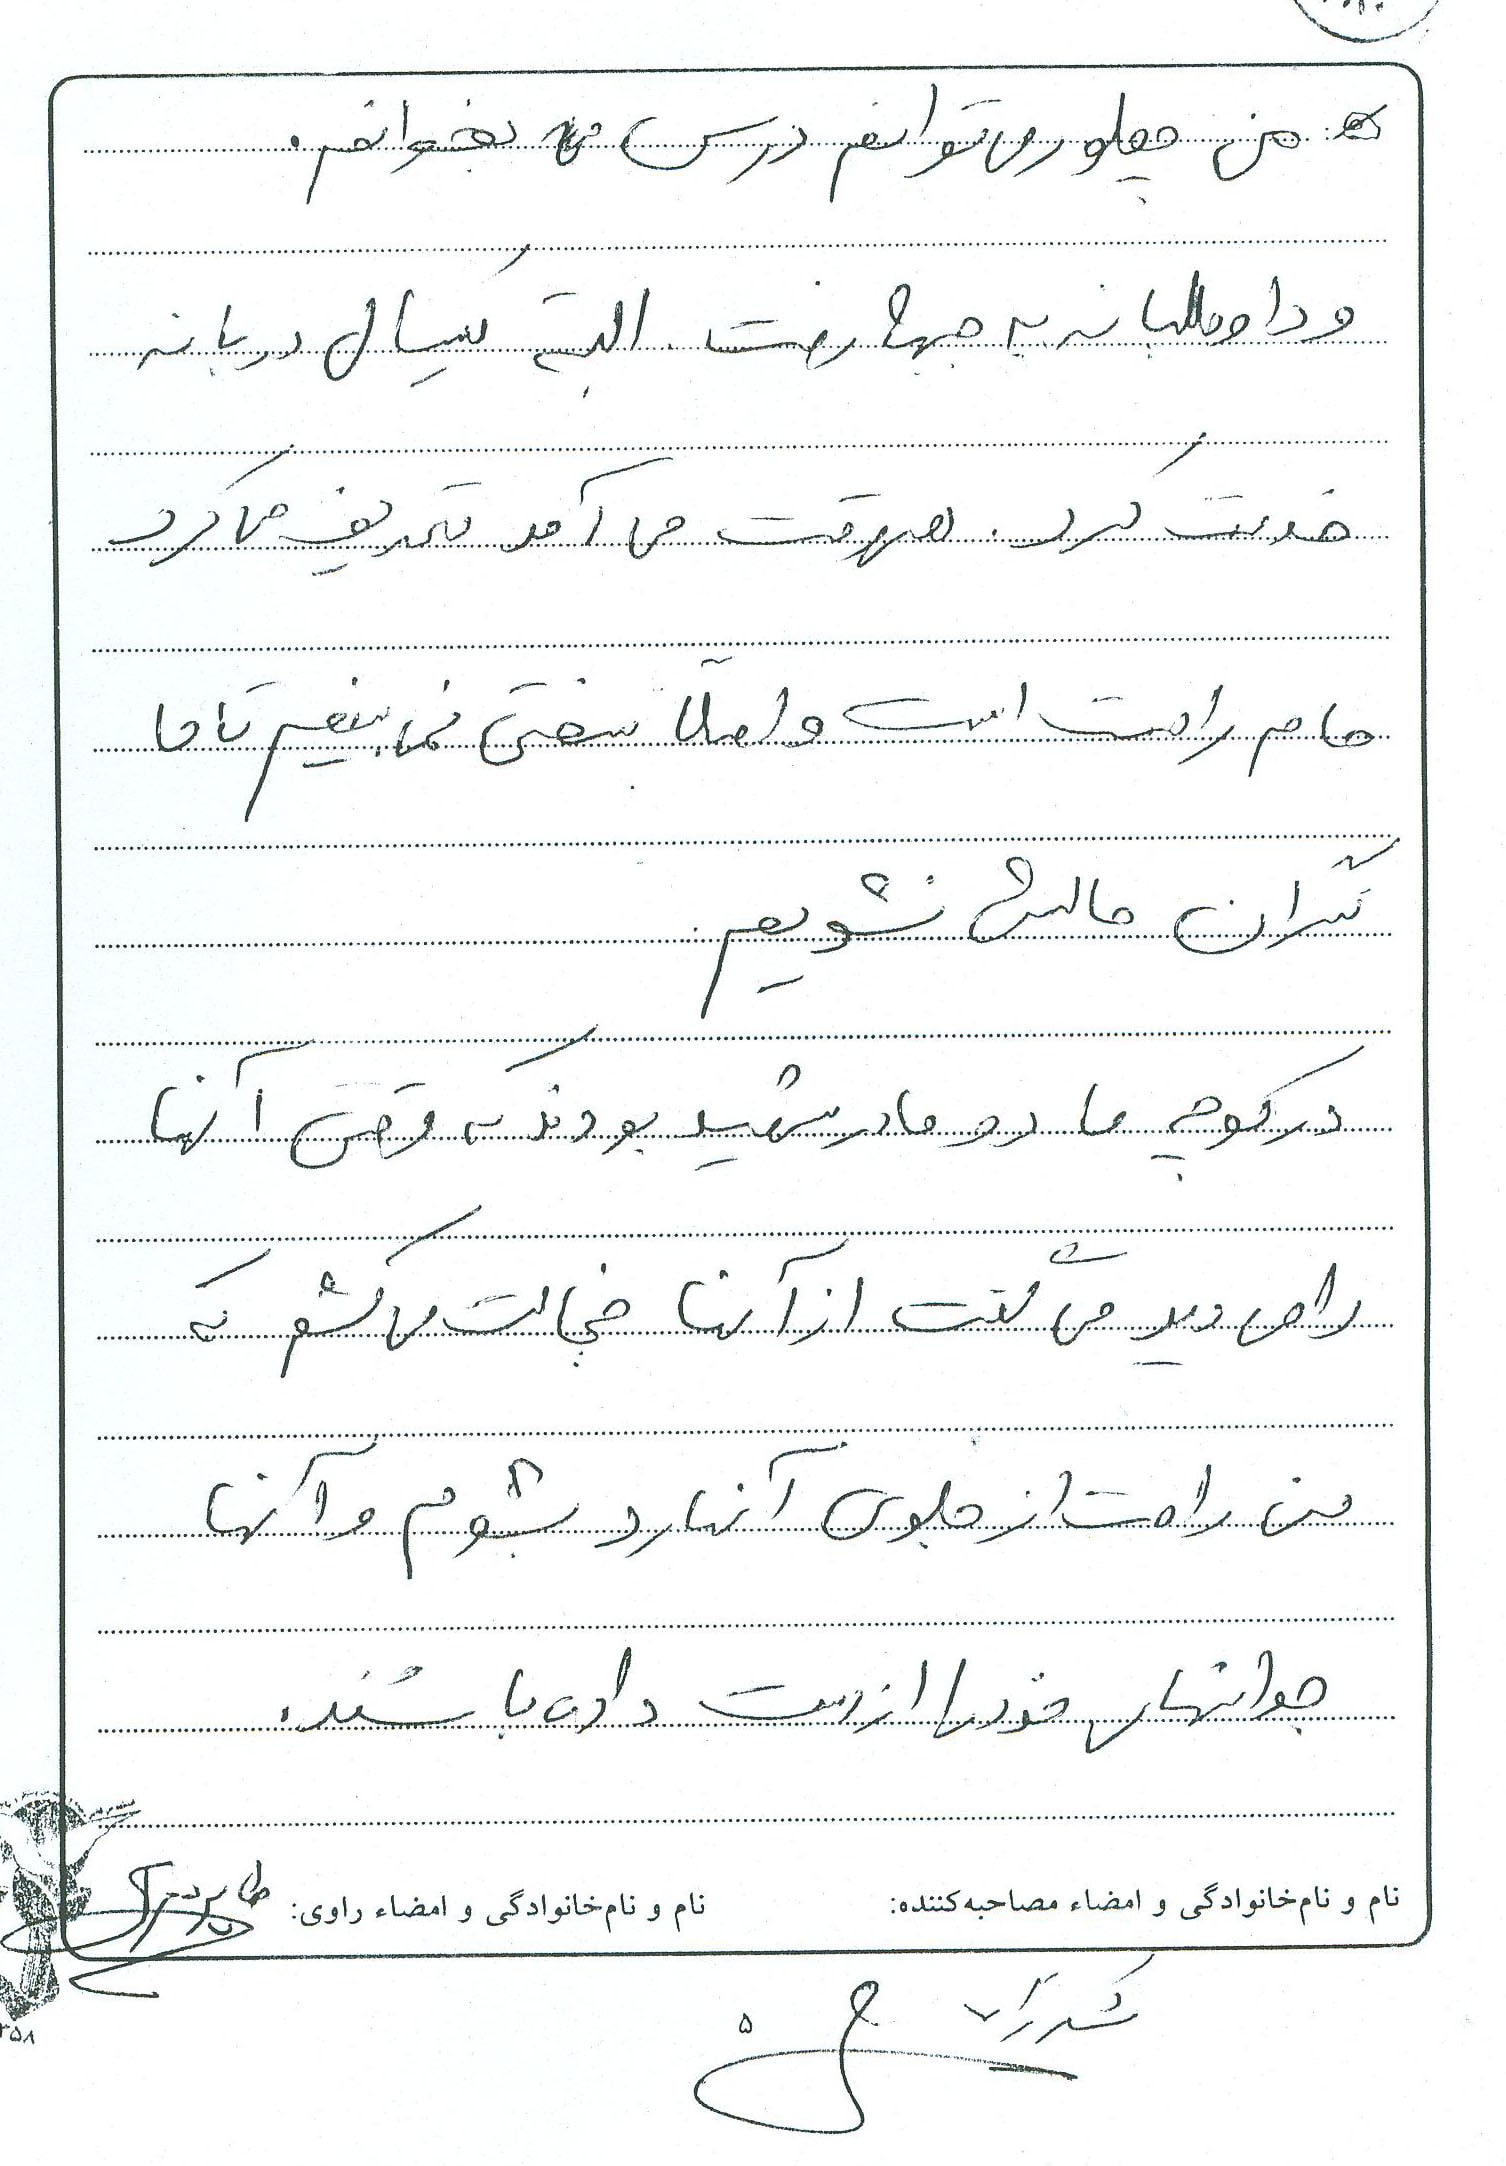 من چطور می‌توانم درس بخوانم.
و داوطلبانه به جبهه رفت. البته یکسال در بانه
خدمت کرد. هروقت می آمد تعریف می کرد
جایم راحت است و اصلاً سختی نمی بینیم تا ما
نگران حالش نشویم.
در کوچه ما دو مادر شهید بودند که وقتی آنها
را می دید می گفت از آنها خجالت می کشم که
من راحت از جلوی آنها رد بشوم و آنها
جوانهای خود را از دست داده باشند.
نام و نام‌خانوادگی و امضاء مصاحبه‌کننده: نام و نام‌خانوادگی و امضاء راوی:
۵